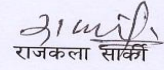 राजकला सार्की